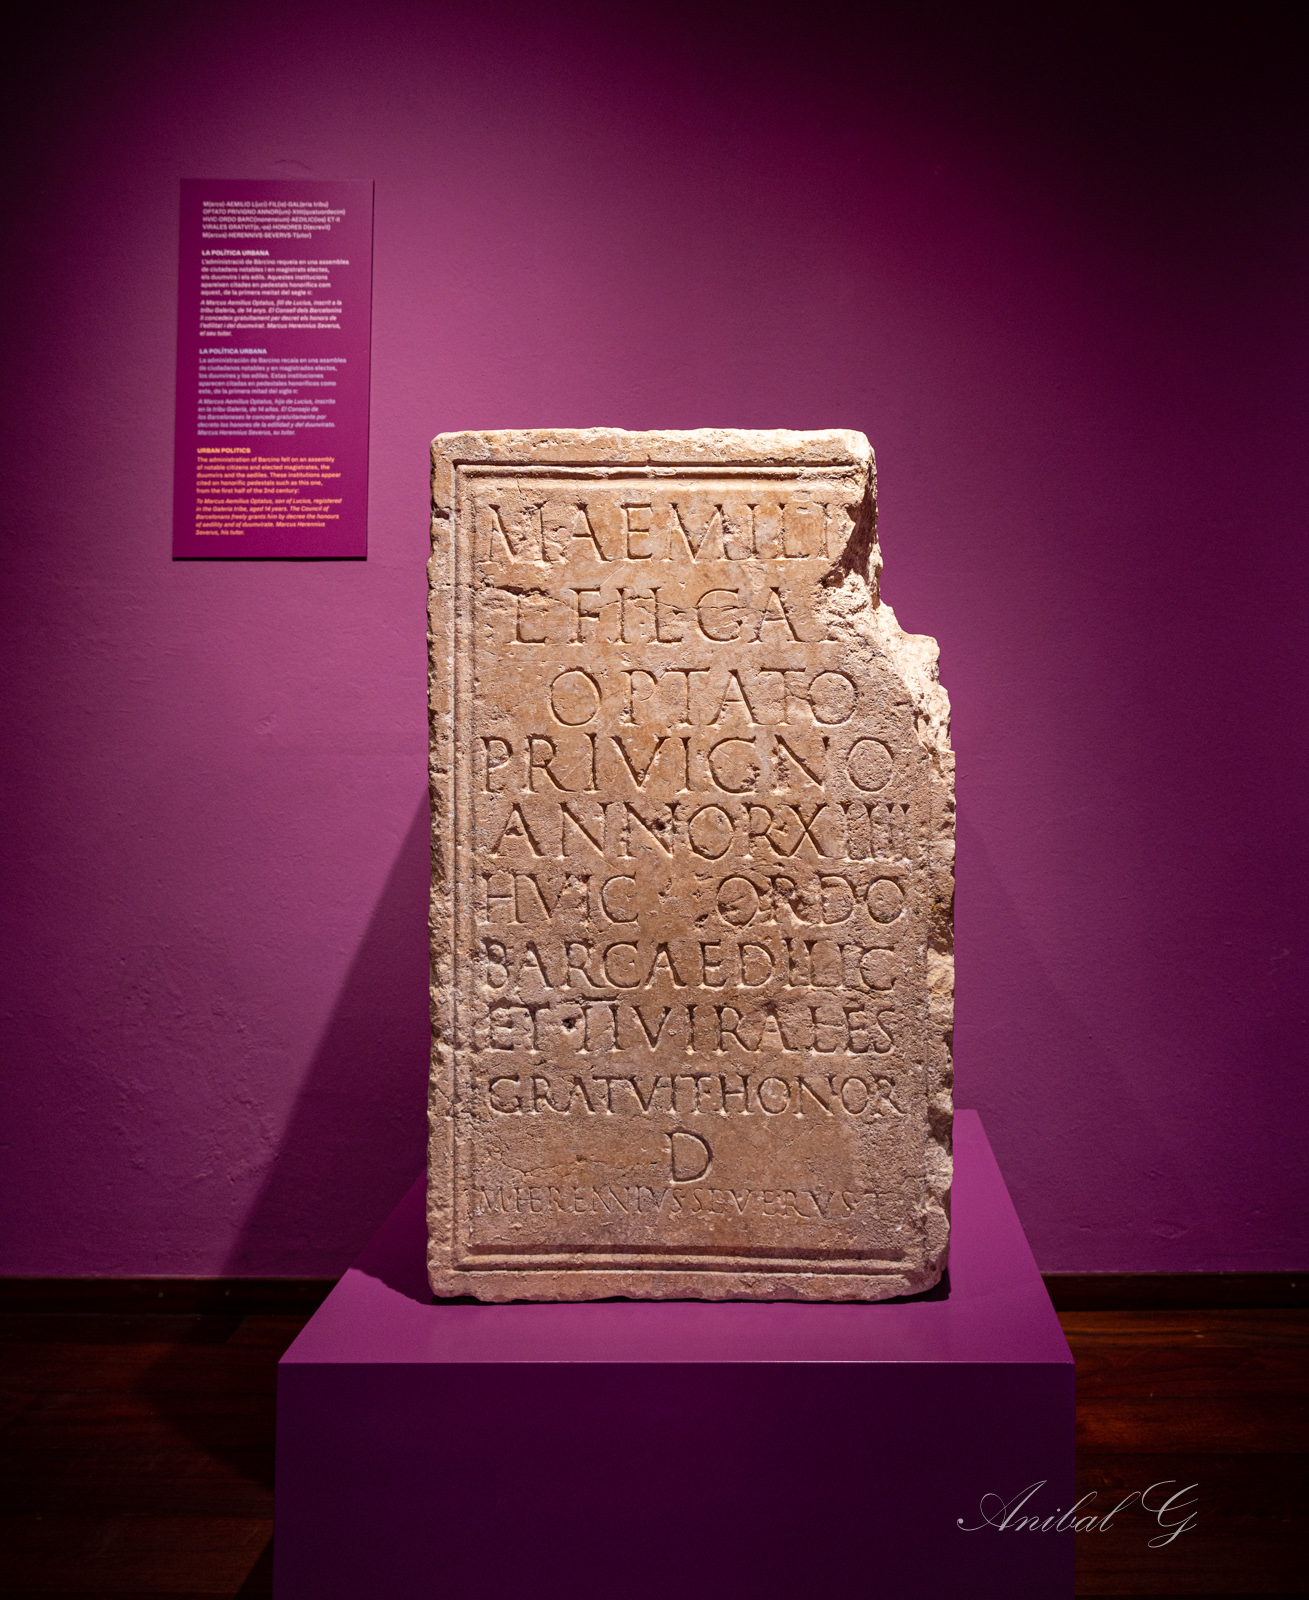 M(arco)·AEMILIO L(uci)·FIL(io)·GAL(eria tribu)
OPTATO PRIVIGNO ANNOR(um)·XIIII(quatuordecim)
HVIC·ORDO BARC(inonensium)·AEDILIC(ios) ET·II
VIRALES GRATVIT(o,-os)·HONORES D(ecrevit)
M(arcus)·HERENNIVS SEVERVS T(utor)
LA POLÍTICA URBANA
L'administració de Bàrcino requeia en una assemblea
de ciutadans notables i en magistrats electes,
els duumvirs i els edils. Aquestes institucions
apareixen citades en pedestals honorífics com
aquest, de la primera meitat del segle II:
A Marcus Aemilius Optatus, fill de Lucius, inscrit a la
tribu Galeria, de 14 anys. El Consell dels Barcelonins
li concedeix gratuïtament per decret els honors de
l'edilitat i del duumvirat. Marcus Herennius Severus,
el seu tutor.
LA POLÍTICA URBANA
La administración de Barcino recaía en una asamblea
de ciudadanos notables y en magistrados electos,
los duunviros y los ediles. Estas instituciones
aparecen citadas en pedestales honoríficos como
este, de la primera mitad del siglo II:
A Marcus Aemilius Optatus, hijo de Lucius, inscrito
en la tribu Galeria, de 14 años. El Consejo de
los Barceloneses le concede gratuitamente por
decreto los honores de la edilidad y del duunvirato.
Marcus Herennius Severus, su tutor.
URBAN POLITICS
The administration of Barcino fell on an assembly
of notable citizens and elected magistrates, the
duumvirs and the aediles. These institutions appear
cited on honorific pedestals such as this one,
from the first half of the 2nd century:
To Marcus Aemilius Optatus, son of Lucius, registered
in the Galeria tribe, aged 14 years. The Council of
Barcelonans freely grants him by decree the honours
of aedility and of duumvirate. Marcus Herennius
Severus, his tutor.
M AEMILI
L FIL GA
OPTATO
PRIVIGNO
ANNOR XIIII
HVIC ORDO
BARC AEDILIC
ET II VIRALES
GRATVIT HONOR
D
M HERENNIVS SEVERVS T
Anibal G